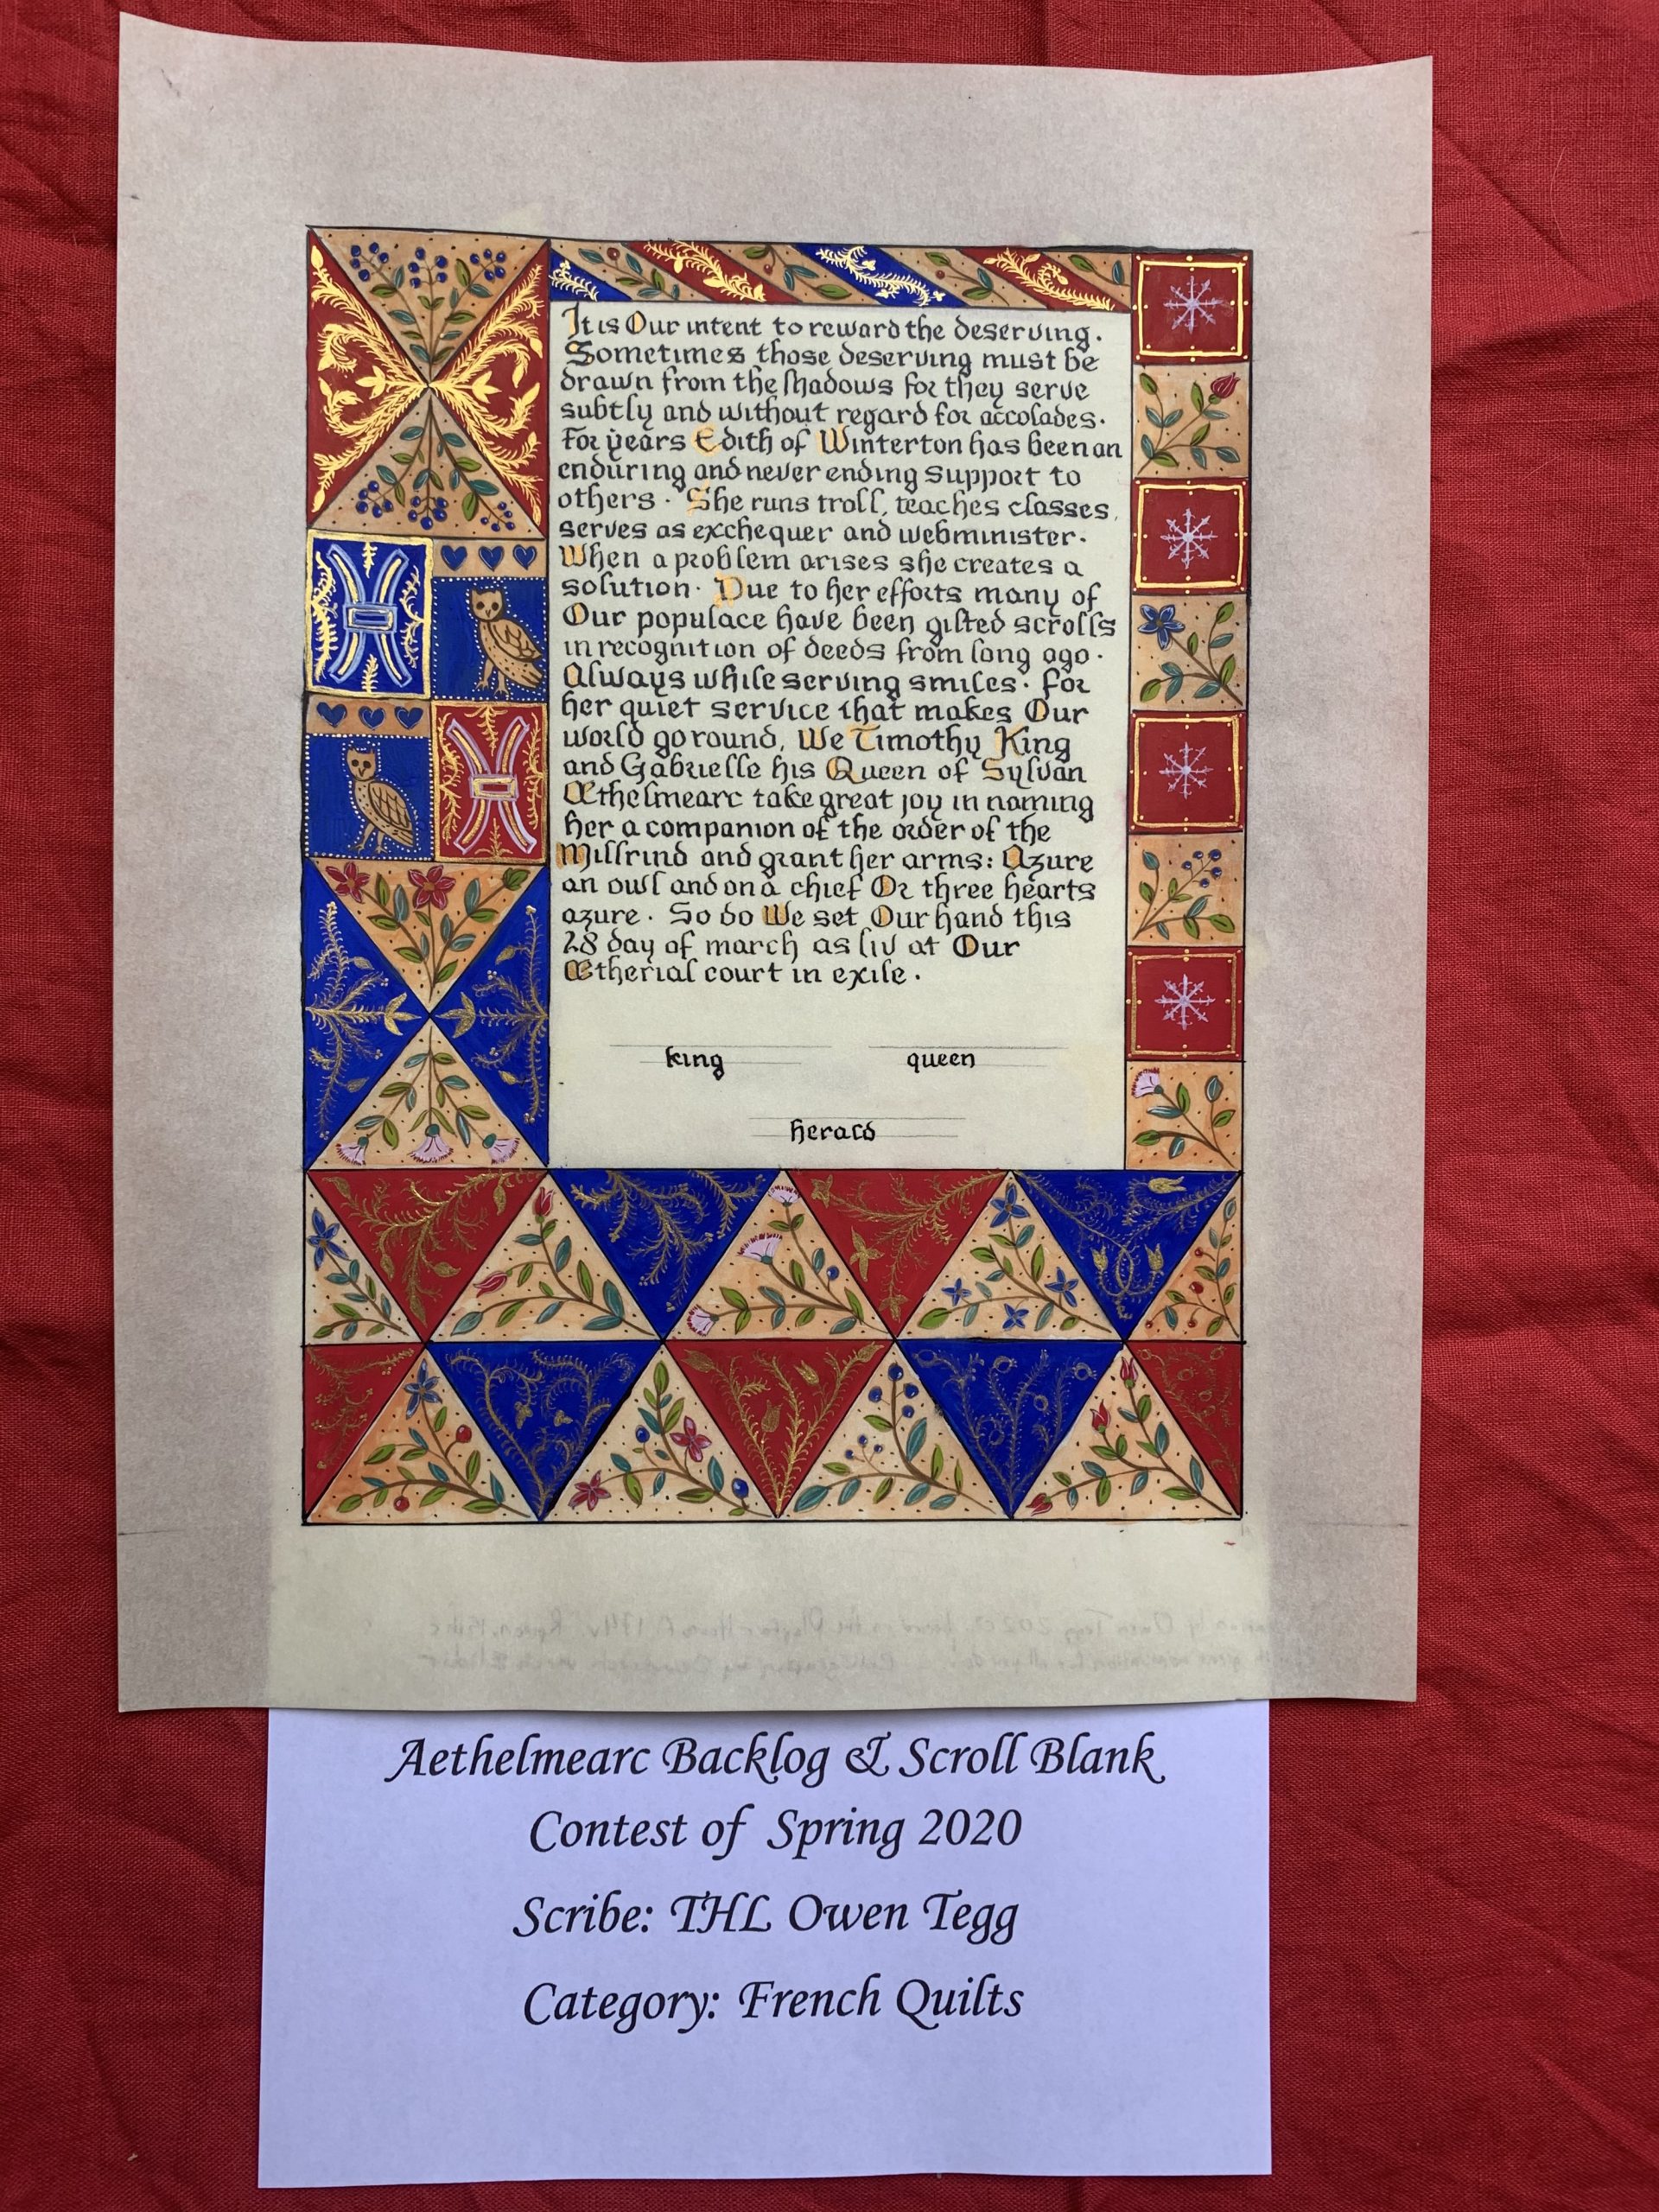 It is Our intent to reward the deserving.
Sometimes those deserving must be
drawn from the shadows for they serve
subtly and without regard for accolades.
For years Edith of Winterton has been an
enduring and never ending support to
others. She runs troll, teaches classes,
serves as exchequer and webminister.
When a problem arises she creates a
solution. Due to her efforts many of
Our populace have been gifted scrolls
in recognition of deeds from long ago.
Always while serving smiles. For
her quiet service that makes Our
world go round, We Timothy King
and Gabrielle his Queen of Sylvan
Æthelmearc take great joy in naming
her a companion of the order of the
Millrind and grant her arms: Azure
an owl and on a chief Or three hearts
azure. So do We set Our hand this
28 day of march as liv at Our
Ætherial court in exile.
king queen
herald
Aethelmearc Backlog & Scroll Blank
Contest of Spring 2020
Scribe: THL Owen Tegg
Category: French Quilts